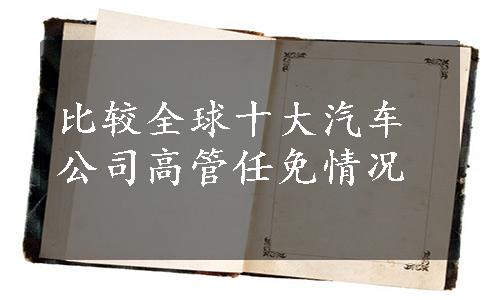 比较全球十大汽车
公司高管任免情况